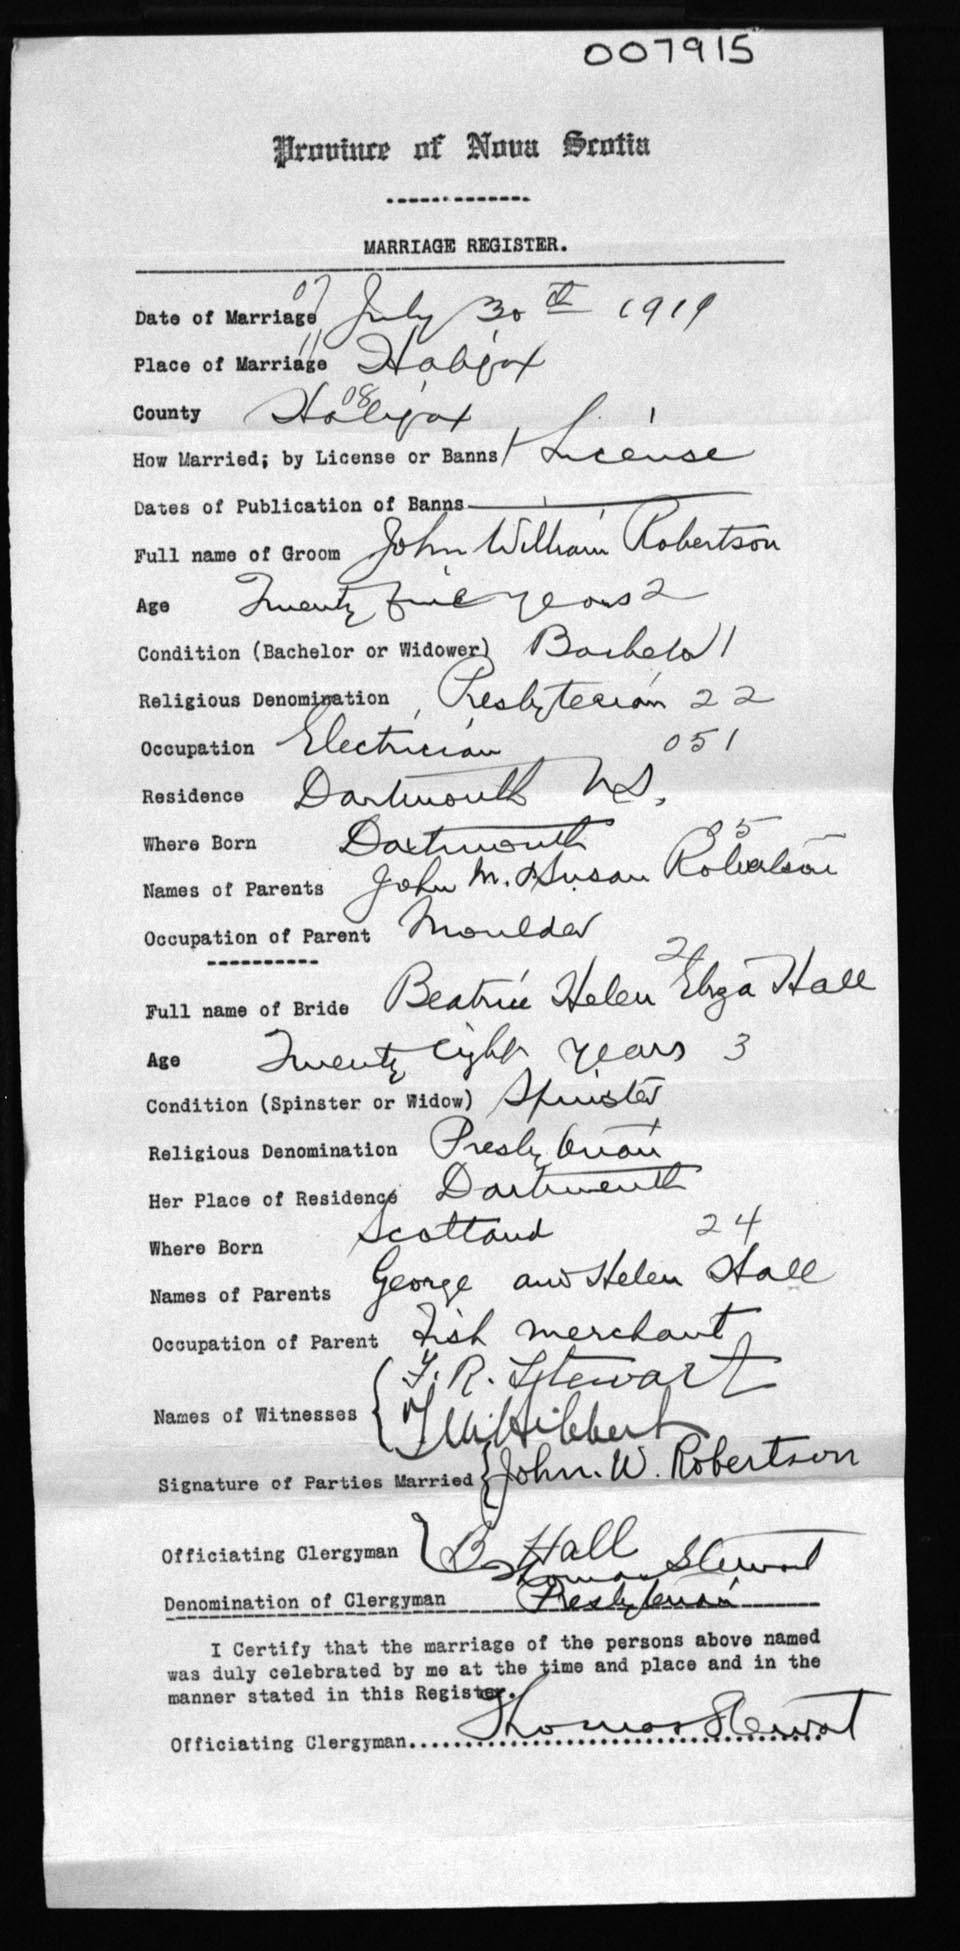 007915
Province of Nova Scotia
MARRIAGE REGISTER.
07
Date of Marriage July 30th 1919
11
Place of Marriage Halifax
08
County Halifax
How Married; by License or Banns License
Dates of Publication of Banns
Full name of Groom John William Robertson
Age Twenty five years 2
Condition (Bachelor or Widower) Bachelor 1
Religious Denomination Presbyterian 22
Occupation Electrician 051
Residence Dartmouth N.S.
Where Born Dartmouth 05
Names of Parents John M. & Susan Robertson
Occupation of Parent Moulder
Full name of Bride Beatrice Helen Eliza Hall
Age Twenty eight years 3
Condition (Spinster or Widow) Spinster
Religious Denomination Presbyterian
Her Place of Residence Dartmouth
Where Born Scotland 24
Names of Parents George and Helen Hall
Occupation of Parent Fish merchant
Names of Witnesses { F. R. Stewart
Hibbert
Signature of Parties Married { John. W. Robertson
B Hall
Officiating Clergyman Thomas Stewart
Denomination of Clergyman Presbyterian
I Certify that the marriage of the persons above named
was duly celebrated by me at the time and place and in the
manner stated in this Register.
Officiating Clergyman..... Thomas Stewart